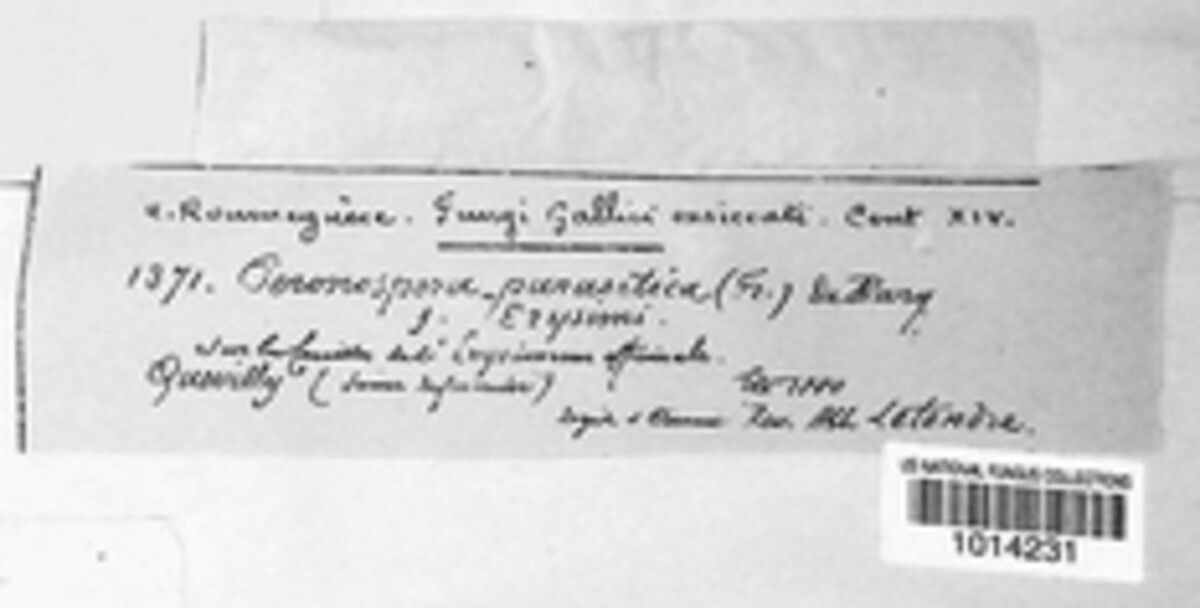 C. Roumeguère. Fungi Gallici exsiccati. Cent XIV.
1371. Peronospora parasitica (Fr.) de Bary
f. Erysimi.
sur les feuilles de l' Erysimum officinale.
Quevilly (
legit Rev. Abb. Letendre.
US NATIONAL FUNGUS COLLECTIONS
1014231